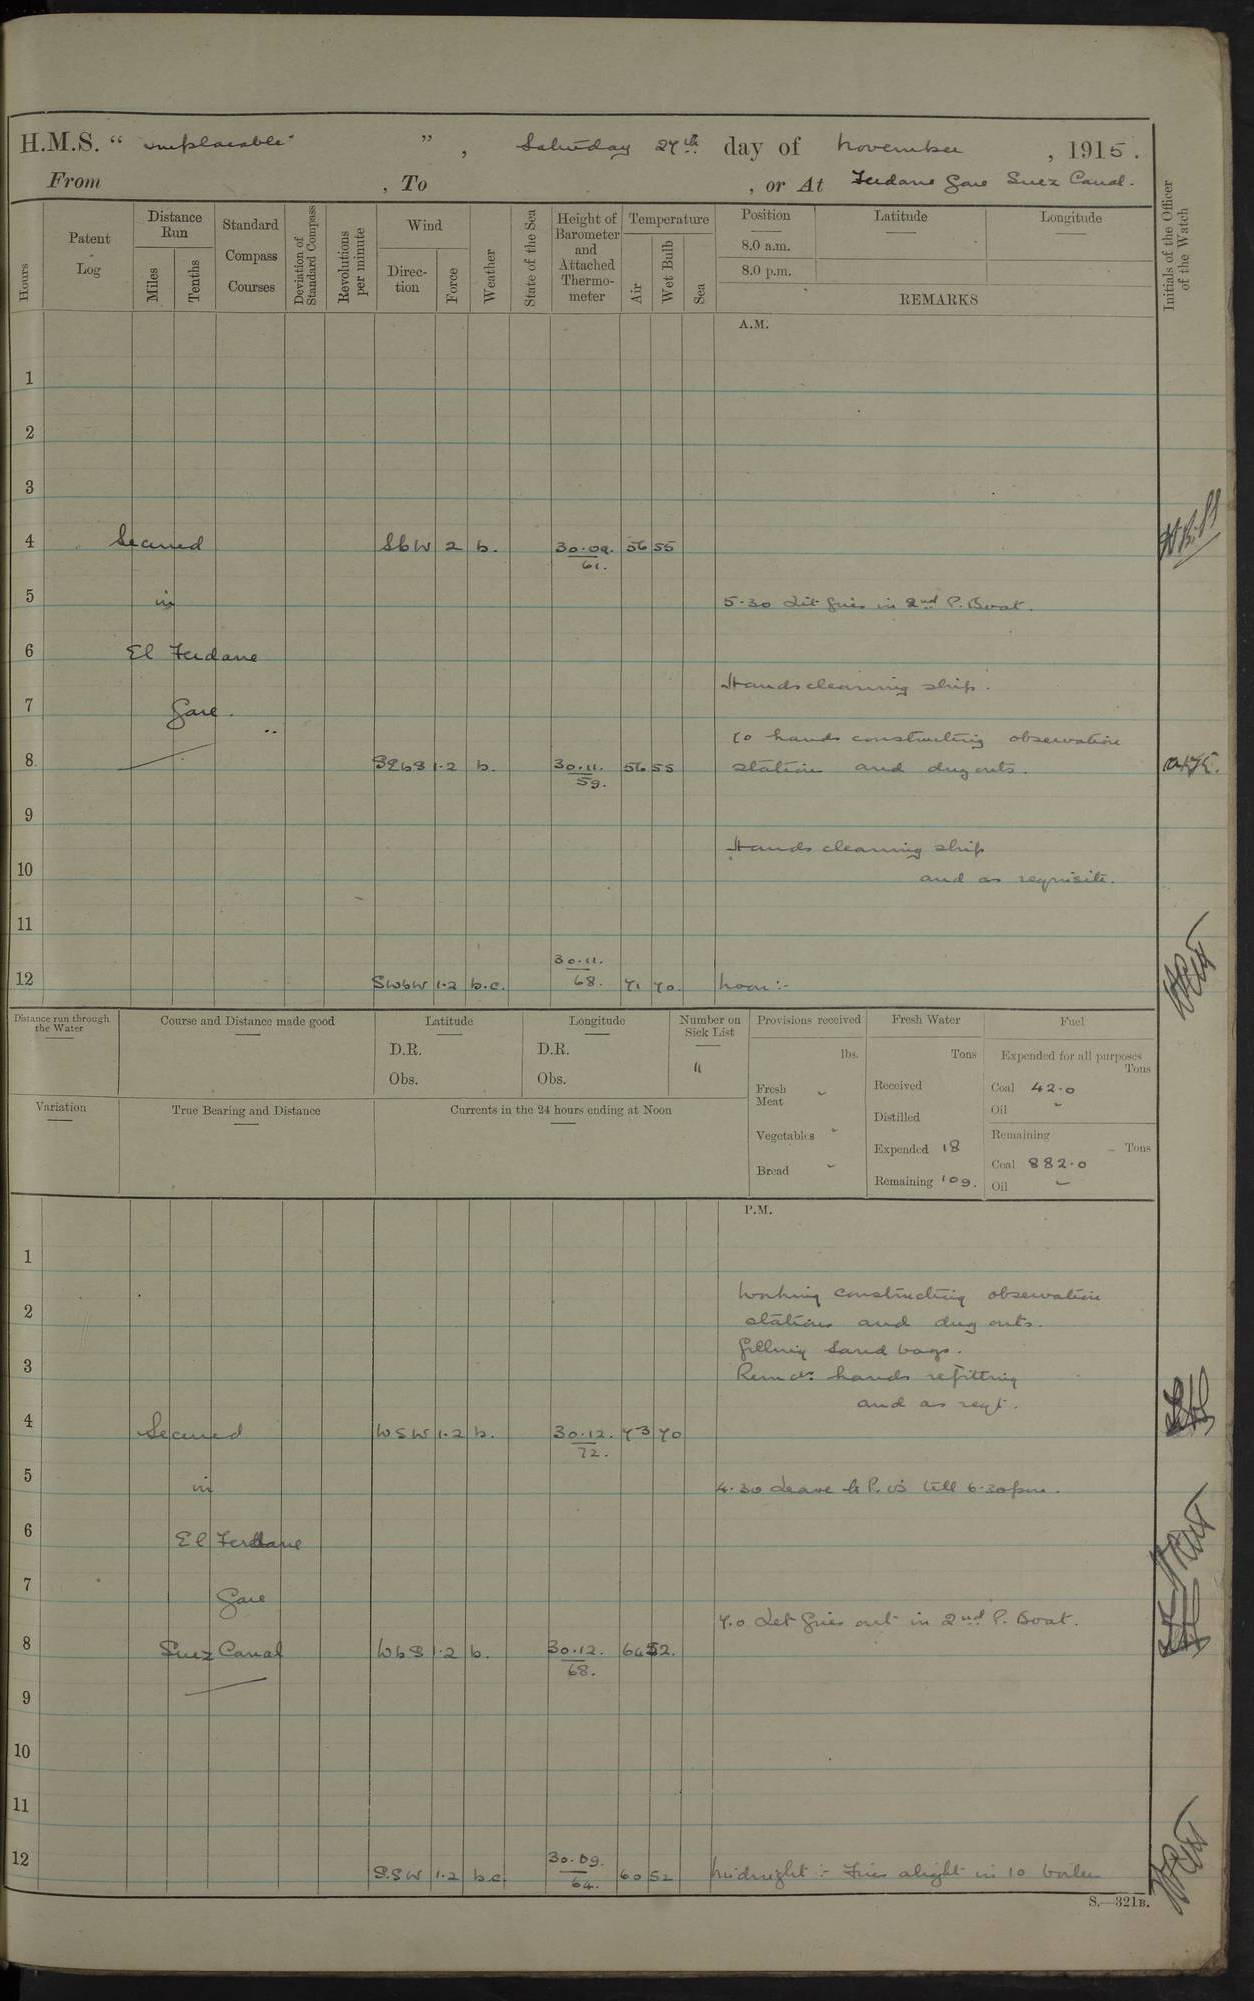 H.M.S. “ Implacable ” , Saturday 27th day of November , 1915.
From , To , or At Ferdane Gare Suez Canal.
Hours
Patent Log
Distance Run
Miles
Tenths
Standard Compass Courses
Deviation of Standard Compass
Revolutions per minute
Wind
Direc- tion
Force
Weather
State of the Sea
Height of Barometer and Attached Thermo- meter
Temperature
Air
Wet Bulb
Sea
Position Latitude Longitude
8.0 a.m.
8.0 p.m.
REMARKS
Initials of the Officer of the Watch
A.M.
1
2
3
4 Secured SbW 2 b. 30.09. 56 55
61.
5 in 5.30 Lit fires in 2nd P. Boat.
6 El Ferdane
Hands cleaning ship.
7 Gare.
60 hands constructing observation
8 1.2 b. 30.11. 56 55 station and dug outs.
59.
9
Hands cleaning ship
10 and as requisite.
11
30.11.
12 SWbW 1.2 b.c. 68. 71 70. Noon :-
Distance run through the Water
Course and Distance made good
Latitude
D.R.
Obs.
Longitude
D.R.
Obs.
Number on Sick List
11
Provisions received
lbs.
Fresh Meat -
Vegetables -
Bread -
Fresh Water
Tons
Received
Distilled
Expended 18
Remaining 109.
Fuel
Expended for all purposes
Tons
Coal 42.0
Oil -
Remaining - Tons
Coal 882.0
Oil -
Variation
True Bearing and Distance
Currents in the 24 hours ending at Noon
P.M.
1
Working constructing observation
2 stations and dug outs.
filling sand bags.
3 Remdr. hands refitting
and as reqt.
4 Secured WSW 1.2 b. 30.12. 73 70
72.
5 in 4.30 Leave to P.O's till 6.30pm.
6 El Ferdane
7 Gare
7.0 Let fires out in 2nd P. Boat.
8 Suez Canal WbS 1.2 b. 30.12. 64 52.
68.
9
10
11
30.09.
12 S.SW 1.2 b.c. 64. 60 52 Midnight :- Fires alight in 10 boilers
S.—321B.